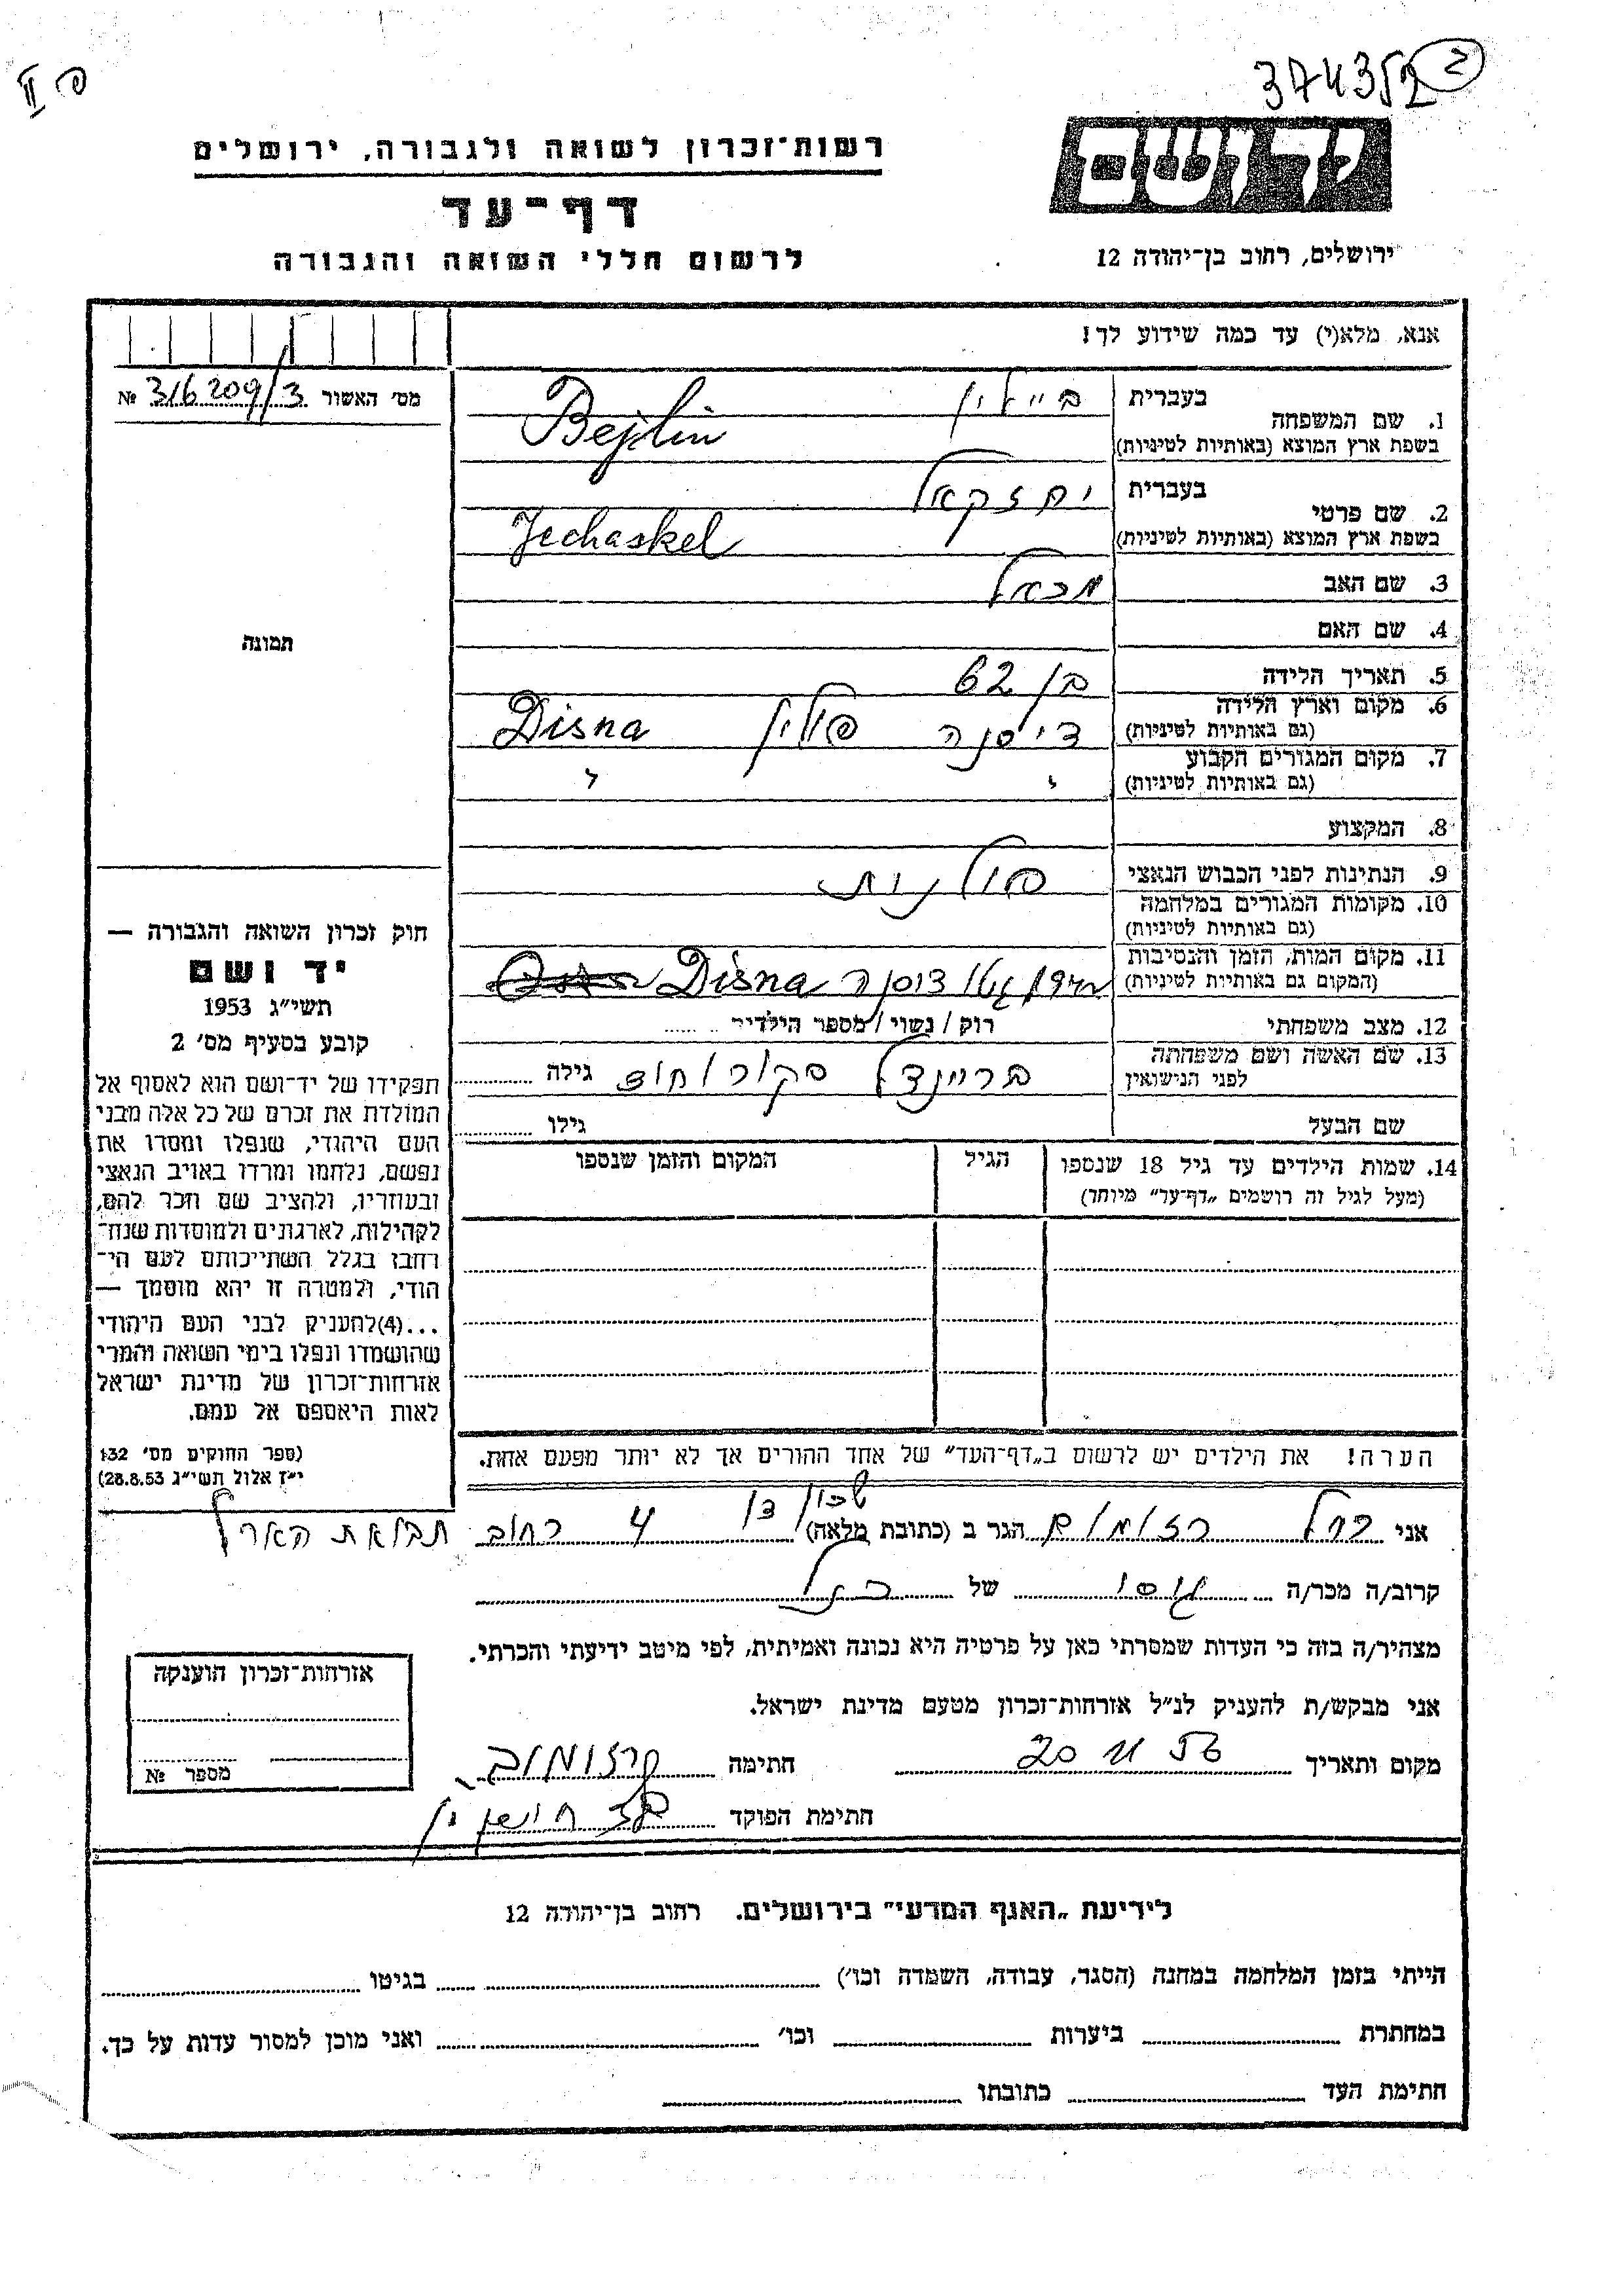 פ II
374352 2
רשות־זכרון לשואה ולגבורה, ירושלים
יד ושם
דף־עד
לרשום חללי השואה והגבורה
ירושלים, רחוב בן־יהודה 12
אנא, מלא(י) עד כמה שידוע לך!
מס׳ האשור 316209/3 №
בעברית ביילין
1. שם המשפחה
בשפת ארץ המוצא (באותיות לטיניות) Bejlin
בעברית יחזקאל
2. שם פרטי
בשפת ארץ המוצא (באותיות לטיניות) Jechaskel
3. שם האב מכאל
4. שם האם
תמונה
5. תאריך הלידה בן 62
6. מקום וארץ הלידה
(גם באותיות לטיניות) דיסנה פולין Disna
7. מקום המגורים הקבוע
(גם באותיות לטיניות) " "
8. המקצוע
9. הנתינות לפני הכבוש הנאצי פולנית
10. מקומות המגורים במלחמה
(גם באותיות לטיניות)
11. מקום המות, הזמן והנסיבות
(המקום גם באותיות לטיניות) גטו דיסנה Disna
12. מצב משפחתי רוק / נשוי / מספר הילדים ......
13. שם האשה ושם משפחתה
לפני הנישואין בריינדל גילה
שם הבעל גילו
14. שמות הילדים עד גיל 18 שנספו
(מעל לגיל זה רושמים „דף־עד״ מיוחד)
הגיל
המקום והזמן שנספו
חוק זכרון השואה והגבורה —
יד ושם
תשי״ג 1953
קובע בסעיף מס׳ 2
תפקידו של יד־ושם הוא לאסוף אל
המולדת את זכרם של כל אלה מבני
העם היהודי, שנפלו ומסרו את
נפשם, נלחמו ומרדו באויב הנאצי
ובעוזריו, ולהציב שם וזכר להם,
לקהילות, לארגונים ולמוסדות שנח־
רחבו בגלל השתייכותם לעם הי־
הודי, ולמטרה זו יהא מוסמך —
...(4)להעניק לבני העם היהודי
שהושמדו ונפלו בימי השואה והמרי
אזרחות־זכרון של מדינת ישראל
לאות היאספם אל עמם.
(ספר החוקים מס׳ 132
י״ז אלול תשי״ג 28.8.53)
הערה! את הילדים יש לרשום ב„דף־העד״ של אחד ההורים אך לא יותר מפעם אחת.
שכון דן
אני הגר ב (כתובת מלאה) 4 רחוב תבואת הארץ
קרוב/ה מכר/ה גסו של
מצהיר/ה בזה כי העדות שמסרתי כאן על פרטיה היא נכונה ואמיתית, לפי מיטב ידיעתי והכרתי.
אני מבקש/ת להעניק לנ״ל אזרחות־זכרון מטעם מדינת ישראל.
מקום ותאריך 20 11 56 חתימה
חתימת הפוקד
אזרחות־זכרון הוענקה
מספר №
לידיעת „האגף המדעי״ בירושלים. רחוב בן־יהודה 12
הייתי בזמן המלחמה במחנה (הסגר, עבודה, השמדה וכו׳) בגיטו
במחתרת ביערות וכו׳ ואני מוכן למסור עדות על כך.
חתימת העד כתובתו